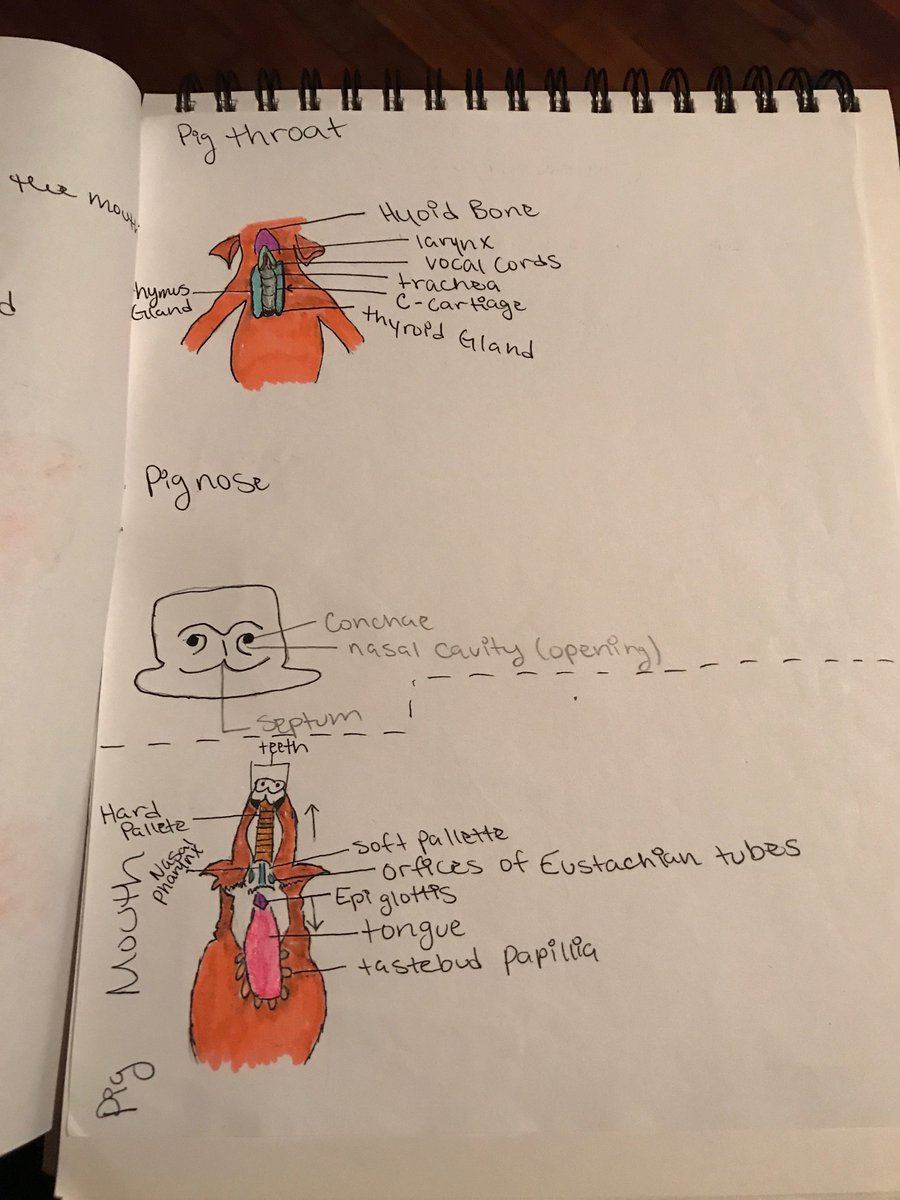 the mout
d
Pig throat
Hyoid Bone
larynx
vocal cords
trachea
C-cartiage
thyroid Gland
hymus
Gland
Pig nose
Conchae
nasal cavity (opening)
Septum
teeth
Hard
Pallete
Nasal
Pharinx
Soft pallette
orfices of Eustachian tubes
Epiglottis
tongue
tastebud Papillia
Pig Mouth